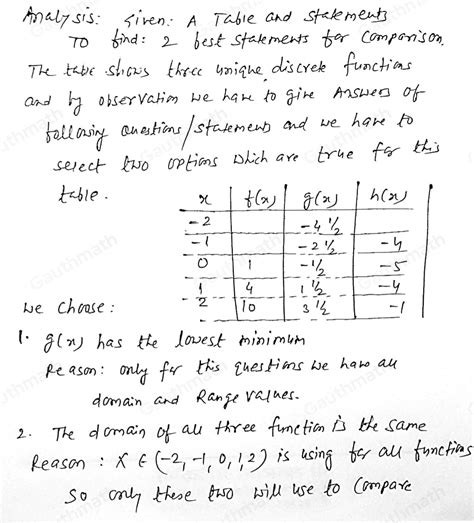 Analysis: Given: A Table and statements
To find: 2 best statements for comparison.
The table shows three unique discrete functions
and by observation we have to give Answer of
following questions/statements and we have to
select two options which are true for this
table.
x f(x) g(x) h(x)
-2 -4 1/2
-1 -2 1/2 -4
0 1 -1/2 -5
1 4 1 1/2 -4
2 10 3 1/2 -1
we choose:
1. g(x) has the lowest minimum
Reason: only for this questions we have all
domain and Range values.
2. The domain of all three function is the same
Reason: X ∈ (-2, -1, 0, 1, 2) is using for all functions
So only these two will use to compare